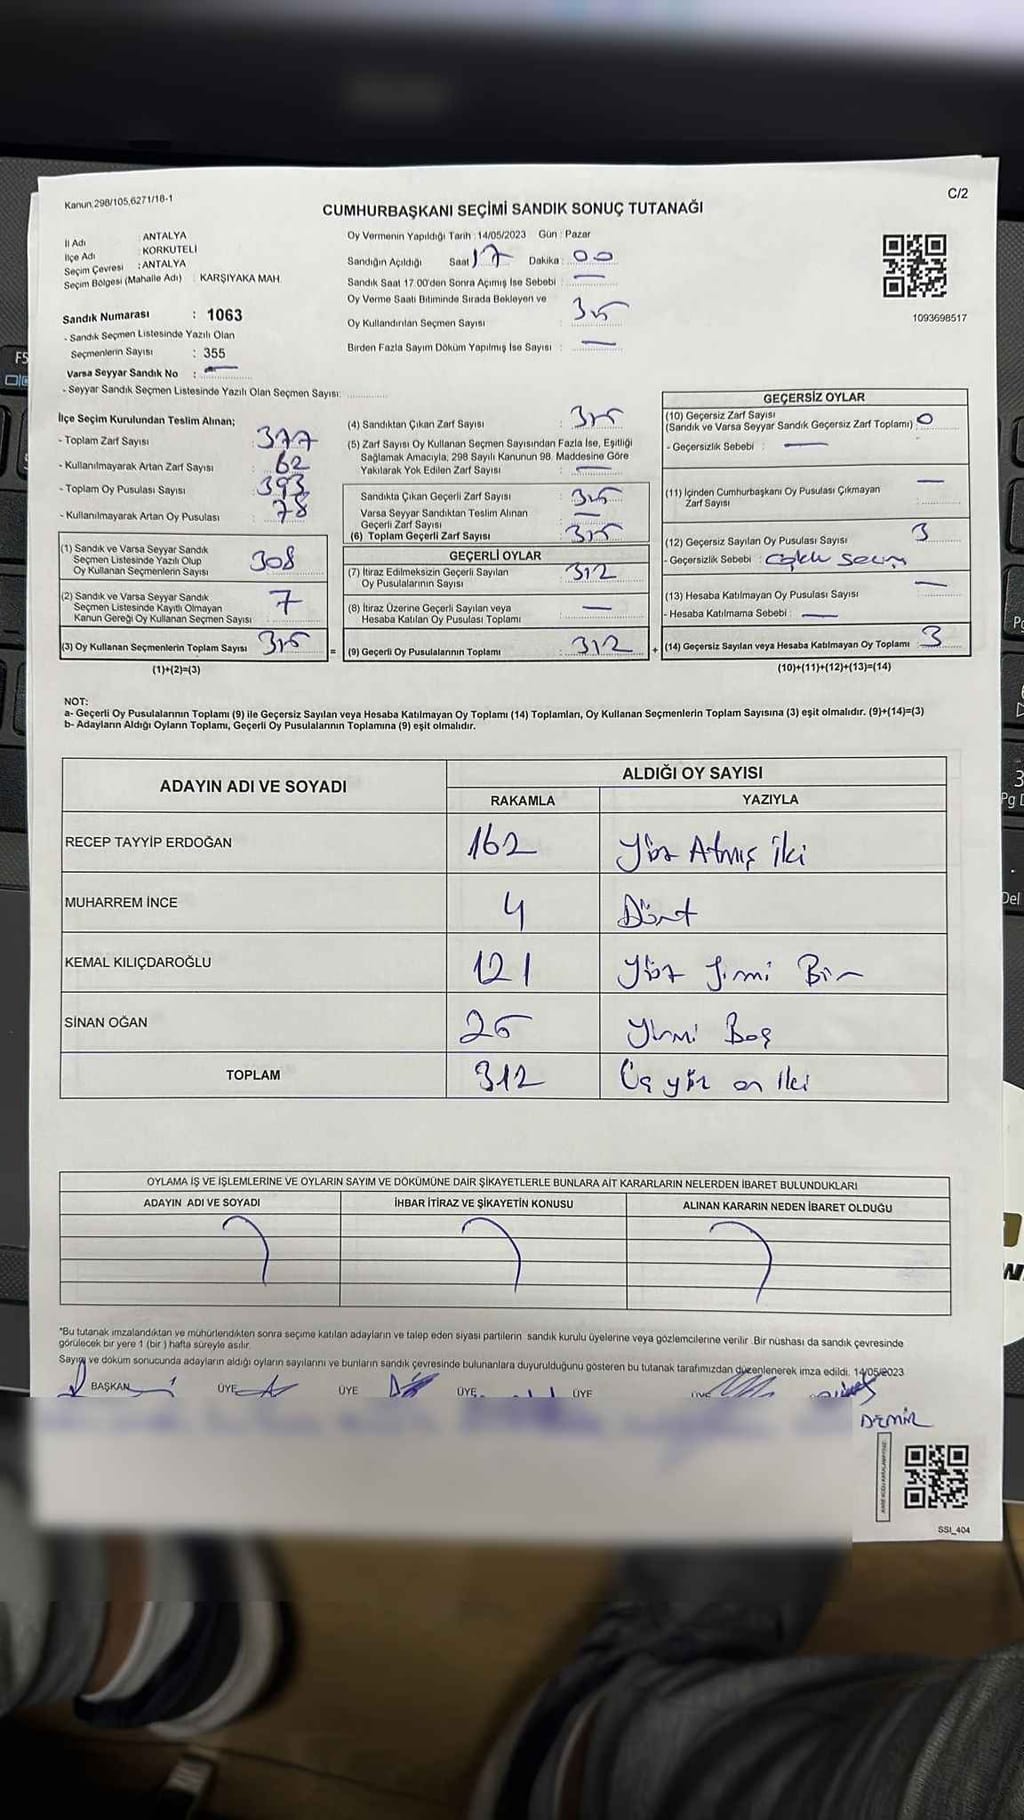 Kanun 298/105,6271/18-1
C/2
CUMHURBAŞKANI SEÇİMİ SANDIK SONUÇ TUTANAĞI
İl Adı ANTALYA
İlçe Adı KORKUTELİ
Seçim Çevresi : ANTALYA
Seçim Bölgesi (Mahalle Adı) : KARŞIYAKA MAH.
Sandık Numarası : 1063
- Sandık Seçmen Listesinde Yazılı Olan
Seçmenlerin Sayısı : 355
Varsa Seyyar Sandık No : —
- Seyyar Sandık Seçmen Listesinde Yazılı Olan Seçmen Sayısı:
Oy Vermenin Yapıldığı Tarih : 14/05/2023 Gün : Pazar
Sandığın Açıldığı Saat 17 Dakika : 00
Sandık Saat 17.00'den Sonra Açımış İse Sebebi : —
Oy Verme Saati Bitiminde Sırada Bekleyen ve
Oy Kullandırılan Seçmen Sayısı : 315
Birden Fazla Sayım Döküm Yapılmış İse Sayısı : —
1093698517
İlçe Seçim Kurulundan Teslim Alınan;
- Toplam Zarf Sayısı : 377
- Kullanılmayarak Artan Zarf Sayısı : 62
- Toplam Oy Pusulası Sayısı : 393
- Kullanılmayarak Artan Oy Pusulası : 78
(1) Sandık ve Varsa Seyyar Sandık
Seçmen Listesinde Yazılı Olup
Oy Kullanan Seçmenlerin Sayısı 308
(2) Sandık ve Varsa Seyyar Sandık
Seçmen Listesinde Kayıtlı Olmayan
Kanun Gereği Oy Kullanan Seçmen Sayısı 7
(3) Oy Kullanan Seçmenlerin Toplam Sayısı 315
(1)+(2)=(3)
(4) Sandıktan Çıkan Zarf Sayısı : 315
(5) Zarf Sayısı Oy Kullanan Seçmen Sayısından Fazla İse, Eşitliği
Sağlamak Amacıyla, 298 Sayılı Kanunun 98. Maddesine Göre
Yakılarak Yok Edilen Zarf Sayısı : —
Sandıkta Çıkan Geçerli Zarf Sayısı : 315
Varsa Seyyar Sandıktan Teslim Alınan
Geçerli Zarf Sayısı : —
(6) Toplam Geçerli Zarf Sayısı : 315
GEÇERLİ OYLAR
(7) İtiraz Edilmeksizin Geçerli Sayılan
Oy Pusulalarının Sayısı : 312
(8) İtiraz Üzerine Geçerli Sayılan veya
Hesaba Katılan Oy Pusulası Toplamı : —
= (9) Geçerli Oy Pusulalarının Toplamı : 312 +
GEÇERSİZ OYLAR
(10) Geçersiz Zarf Sayısı
(Sandık ve Varsa Seyyar Sandık Geçersiz Zarf Toplamı) 0
- Geçersizlik Sebebi : —
(11) İçinden Cumhurbaşkanı Oy Pusulası Çıkmayan —
Zarf Sayısı
(12) Geçersiz Sayılan Oy Pusulası Sayısı 3
- Geçersizlik Sebebi : Çoklu seçim
(13) Hesaba Katılmayan Oy Pusulası Sayısı : —
- Hesaba Katılmama Sebebi : —
(14) Geçersiz Sayılan veya Hesaba Katılmayan Oy Toplamı 3
(10)+(11)+(12)+(13)=(14)
NOT:
a- Geçerli Oy Pusulalarının Toplamı (9) ile Geçersiz Sayılan veya Hesaba Katılmayan Oy Toplamı (14) Toplamları, Oy Kullanan Seçmenlerin Toplam Sayısına (3) eşit olmalıdır. (9)+(14)=(3)
b- Adayların Aldığı Oyların Toplamı, Geçerli Oy Pusulalarının Toplamına (9) eşit olmalıdır.
ADAYIN ADI VE SOYADI
ALDIĞI OY SAYISI
RAKAMLA YAZIYLA
RECEP TAYYİP ERDOĞAN 162 Yüz Atmış İki
MUHARREM İNCE 4 Dört
KEMAL KILIÇDAROĞLU 121 Yüz Yirmi Bir
SİNAN OĞAN 25 Yirmi Beş
TOPLAM 312 Üç yüz on iki
OYLAMA İŞ VE İŞLEMLERİNE VE OYLARIN SAYIM VE DÖKÜMÜNE DAİR ŞİKAYETLERLE BUNLARA AİT KARARLARIN NELERDEN İBARET BULUNDUKLARI
ADAYIN ADI VE SOYADI İHBAR İTİRAZ VE ŞİKAYETİN KONUSU ALINAN KARARIN NEDEN İBARET OLDUĞU
*Bu tutanak imzalandıktan ve mühürlendikten sonra seçime katılan adayların ve talep eden siyasi partilerin sandık kurulu üyelerine veya gözlemcilerine verilir. Bir nüshası da sandık çevresinde
görülecek bir yere 1 (bir ) hafta süreyle asılır.
Sayım ve döküm sonucunda adayların aldığı oyların sayılarını ve bunların sandık çevresinde bulunanlara duyurulduğunu gösteren bu tutanak tarafımızdan düzenlenerek imza edildi. 14/05/2023
BAŞKAN ÜYE ÜYE ÜYE ÜYE ÜYE
DEMİR
SSI_404